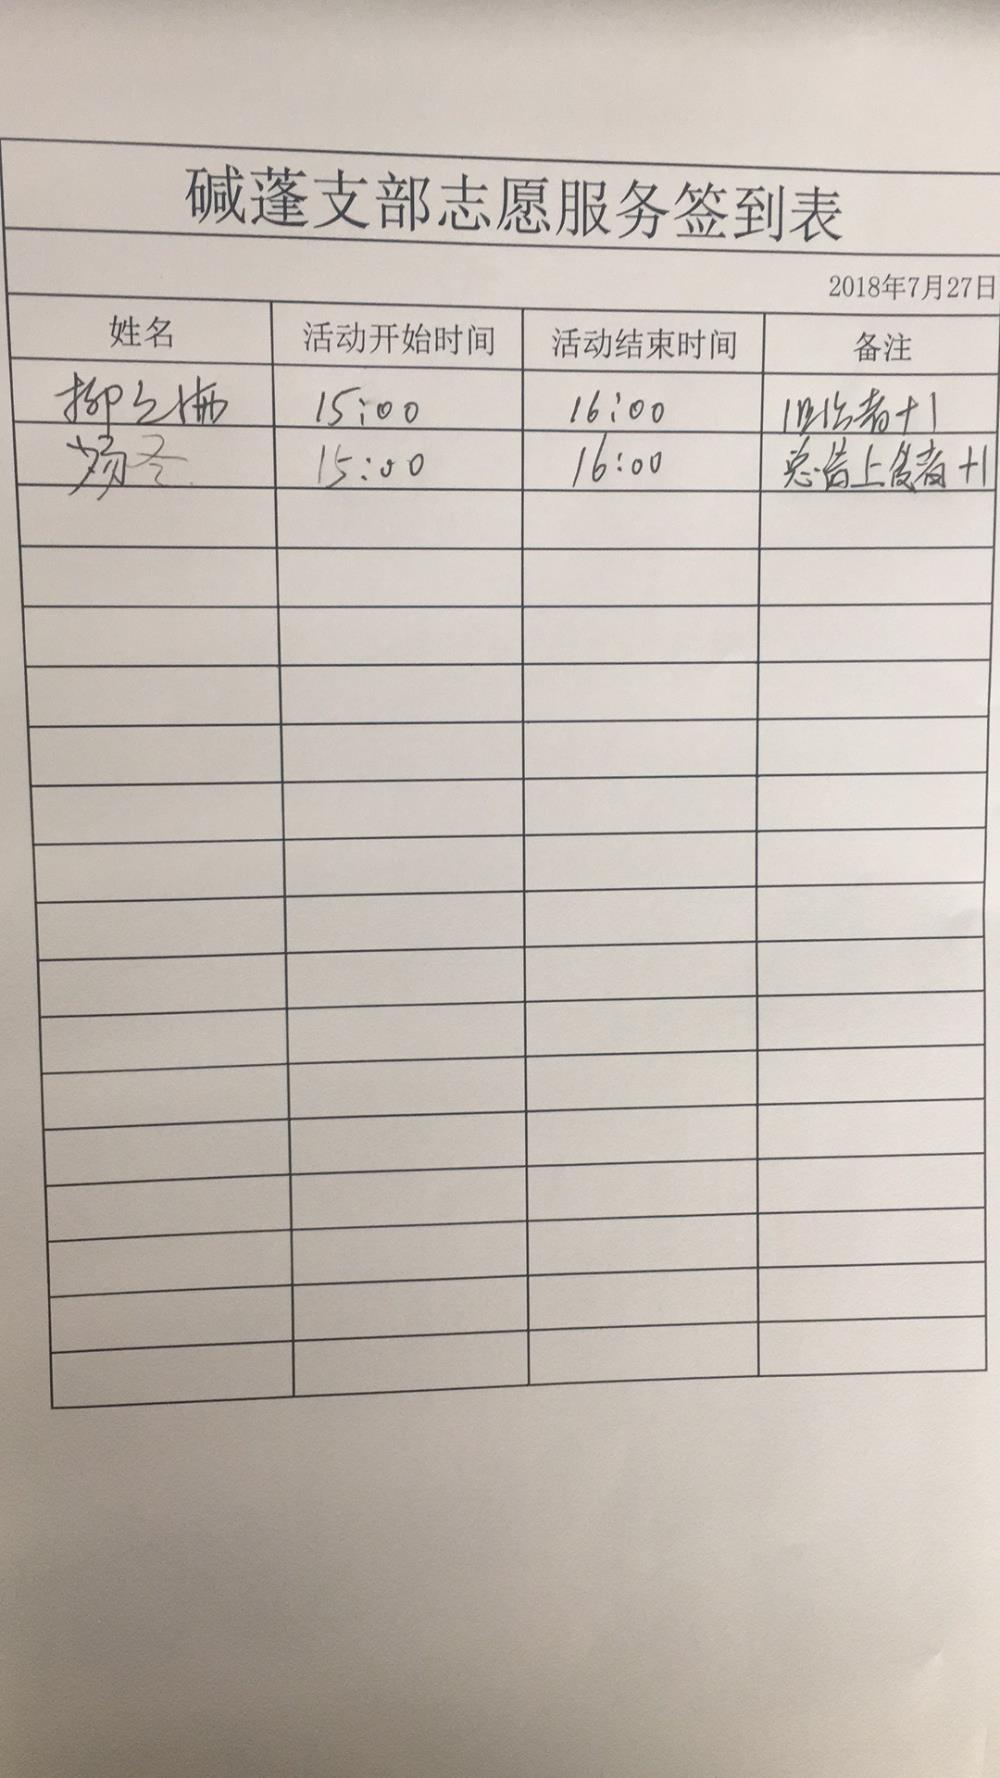 碱蓬支部志愿服务签到表
2018年7月27日
姓名 活动开始时间 活动结束时间 备注
柳 15:00 16:00 者+1
杨冬 15:00 16:00 总结上传者+1